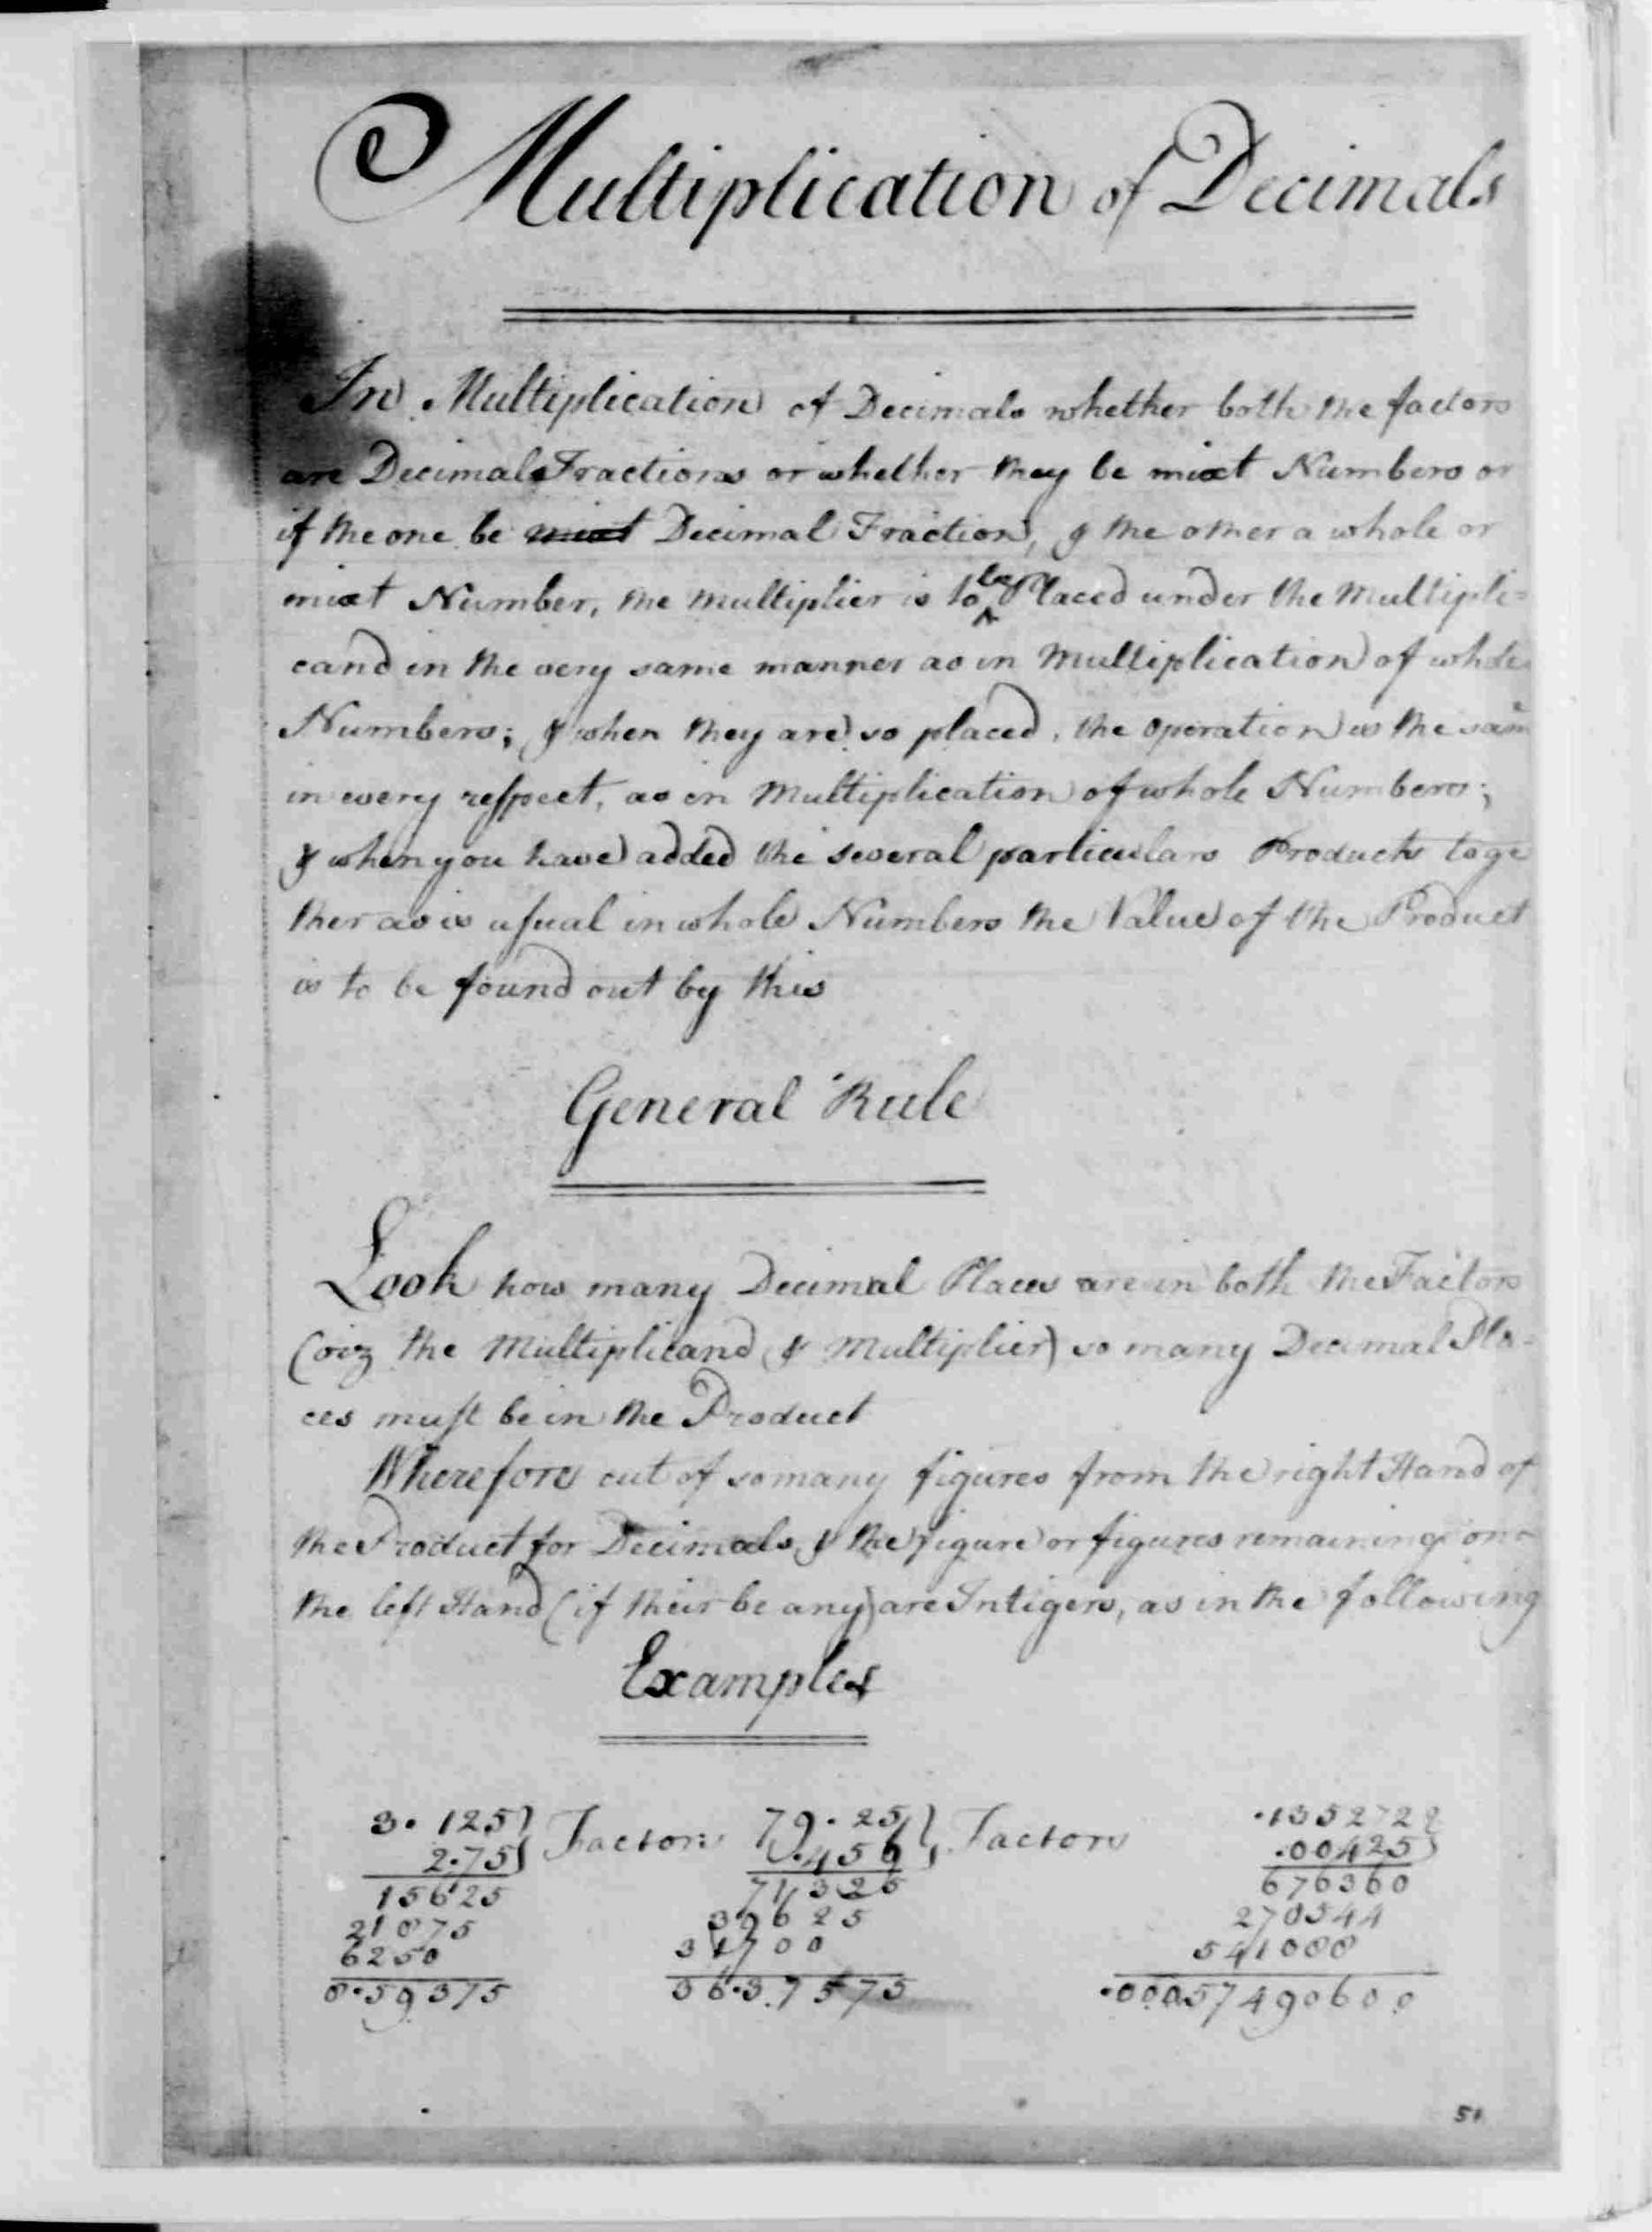 Multiplication of Decimals
In Multiplication of Decimals whether both the factors
are Decimal Fractions or whether they be mixt Numbers or
if the one be mixt Decimal Fraction, & the other a whole or
mixt Number, the Multiplier is to be Placed under the Multipli=
cand in the very same manner as in Multiplication of whole
Numbers; & when they are so placed, the Operation is the same
in every respect, as in Multiplication of whole Numbers;
& when you have added the several particulars Products toge
ther as is usual in whole Numbers the Value of the Product
is to be found out by this
General Rule
Look how many Decimal Places are in both the Factors
(viz the Multiplicand & Multiplier) so many Decimal Pla-
ces must be in the Product
Wherefore cut of so many figures from the right Hand of
the Product for Decimals, & the figure or figures remaining on
the left Hand (if their be any) are Intigers, as in the following
Examples
3.125 } Factors 79.25 } Factors .135272 }
2.75 .459 .00425
15625 71325 676360
21875 39625 270544
6250 31700 541088
8.59375 36.37575 .00057490600
51